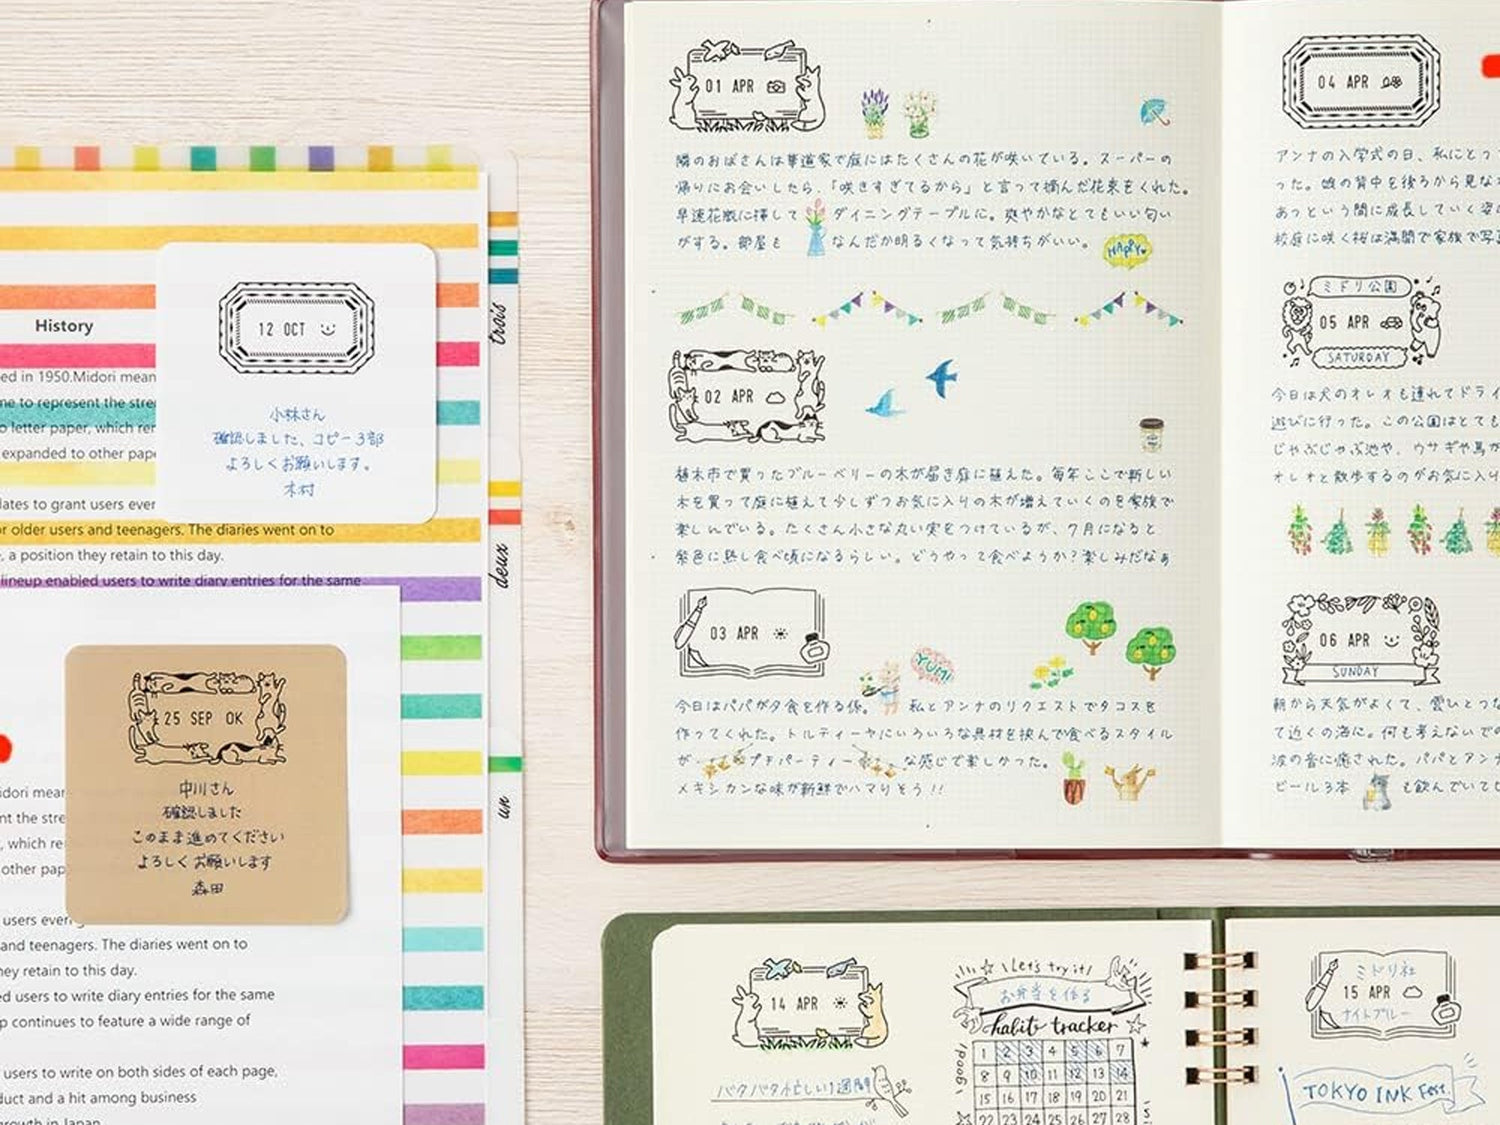 History
ed in 1950.Midori mean
me to represent the stre
o letter paper, which rer
expanded to other pape
lates to grant users ever
or older users and teenagers. The diaries went on to
, a position they retain to this day.
lineup enabled users to write diary entries for the same
12 OCT
小林さん
確認しました、コピー3部
よろしくお願いします。
木村
trois
deux
un
25 SEP OK
中川さん
確認しました
このまま進めてください
よろしくお願いします
森田
idori mear
nt the stre
, which re
other pap
users even
and teenagers. The diaries went on to
hey retain to this day.
ed users to write diary entries for the same
p continues to feature a wide range of
users to write on both sides of each page,
duct and a hit among business
growth in Japan
01 APR
隣のおばさんは華道家で庭にはたくさんの花が咲いている。スーパーの
帰りにお会いしたら、「咲きすぎてるから」と言って摘んだ花束をくれた。
早速花瓶に挿して ダイニングテーブルに。爽やかなとてもいい匂い
がする。部屋も なんだか明るくなって気持ちがいい。
HAPPY
02 APR
植木市で買ったブルーベリーの木が届き庭に植えた。毎年ここで新しい
木を買って庭に植えて少しずつお気に入りの木が増えていくのを家族で
楽しんでいる。たくさん小さな丸い実をつけているが、7月になると
紫色に熟し食べ頃になるらしい。どうやって食べようか?楽しみだなぁ
03 APR
YUM!
今日はパパが夕食を作る係。 私とアンナのリクエストでタコスを
作ってくれた。トルティーヤにいろいろな具材を挟んで食べるスタイル
が プチパーティー な感じで楽しかった。
メキシカンな味が新鮮でハマりそう!!
04 APR
アンナの入学式の日、私にとっ
った。娘の背中を後ろから見な
あっという間に成長していく姿
校庭に咲く桜は満開で家族で写
ミドリ公園
05 APR
SATURDAY
今日は犬のオレオも連れてドライ
遊びに行った。この公園はとても
じゃぶじゃぶ池や、ウサギや馬が
オレオと散歩するのがお気に入り
06 APR
SUNDAY
朝から天気がよくて、雲ひとつな
て近くの海に。何も考えないでの
波の音に癒された。パパとアン
ビール3本 も飲んでいてし
14 APR
バタバタ忙しい1週間
Let's try it!
お弁当を作る
habit tracker
1 2 3 4 5 6 7
8 9 10 11 12 13 14
15 16 17 18 19 20 21
22 23 24 25 26 27 28
good!
ミドリ社
15 APR
ナイトブルー
TOKYO INK Fest.